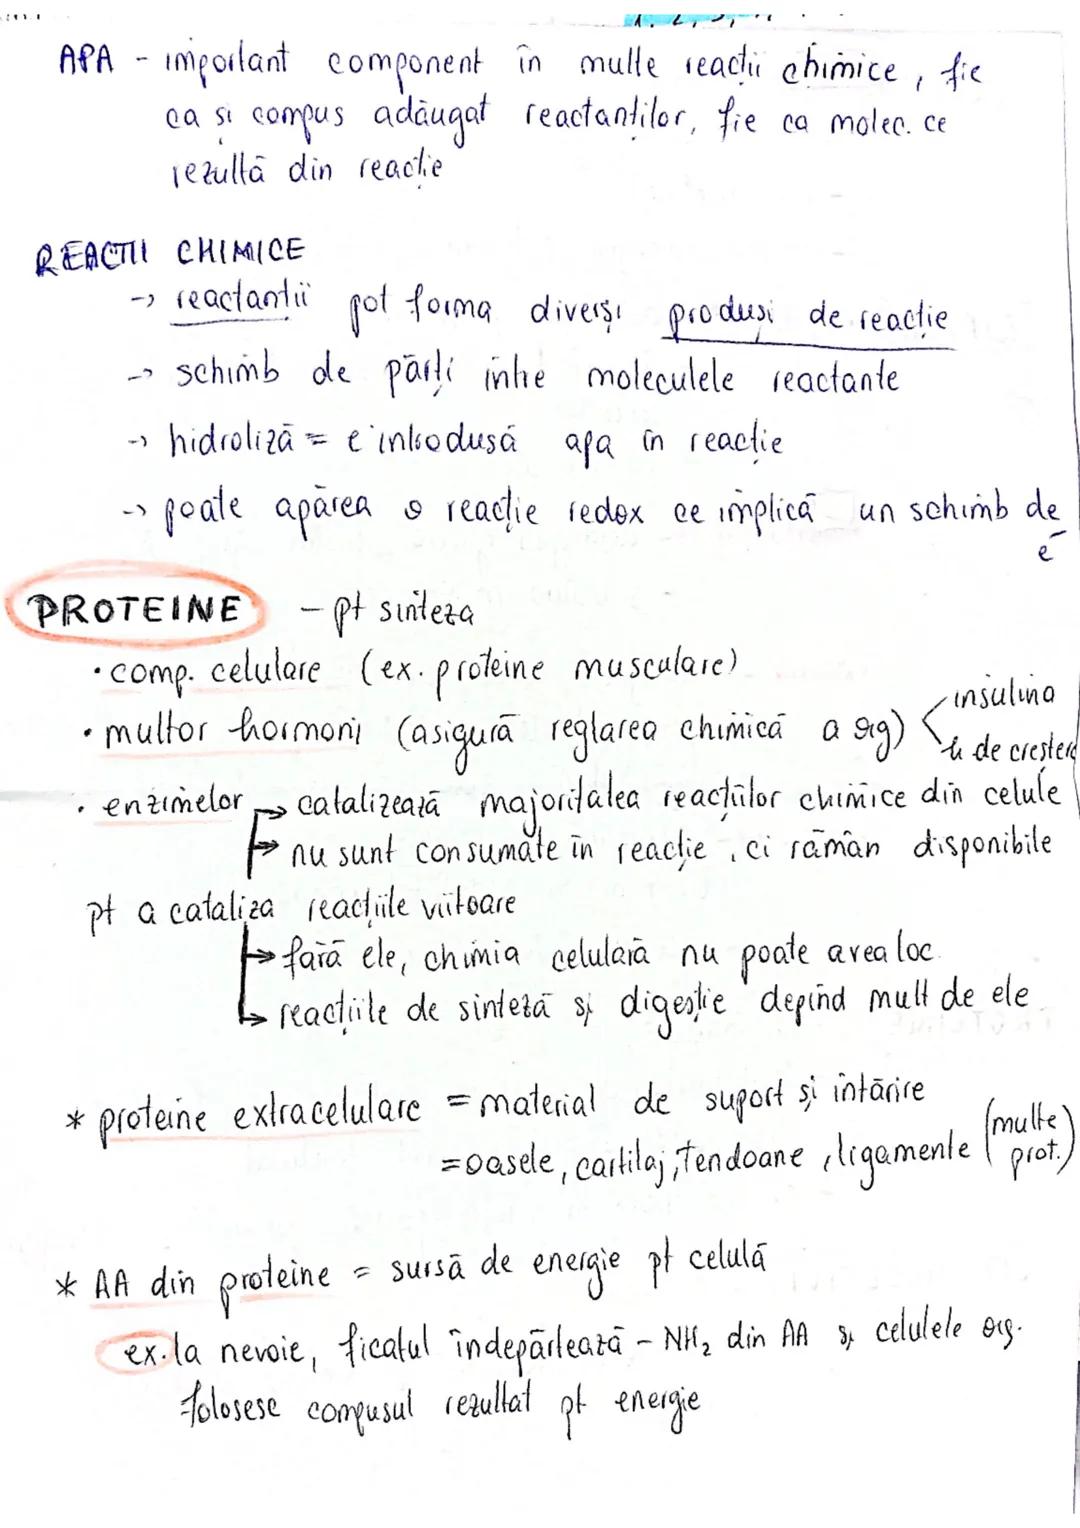 APA - important component în multe reacții chimice, fie
ca și compus adăugat reactanților, fie ca molec. ce
rezultă din reacție
REACȚII CHIMICE
-> reactanții pot forma diverși produși de reacție
-> schimb de părți între moleculele reactante
-> hidroliză = e introdusă apa în reacție
-> poate apărea o reacție redox ce implică un schimb de
e⁻
PROTEINE - pt sinteza
• comp. celulare (ex. proteine musculare)
• multor hormoni (asigură reglarea chimică a org) insulina
h de creștere
• enzimelor → catalizează majoritatea reacțiilor chimice din celule
→ nu sunt consumate în reacție, ci rămân disponibile
pt a cataliza reacțiile viitoare
→ fără ele, chimia celulară nu poate avea loc
→ reacțiile de sinteză și digestie depind mult de ele
* proteine extracelulare = material de suport și întărire
= oasele, cartilaj, tendoane, ligamente (multe prot.)
* AA din proteine = sursă de energie pt celulă
ex. la nevoie, ficatul îndepărtează - NH₂ din AA și celulele org.
folosesc compusul rezultat pt energie